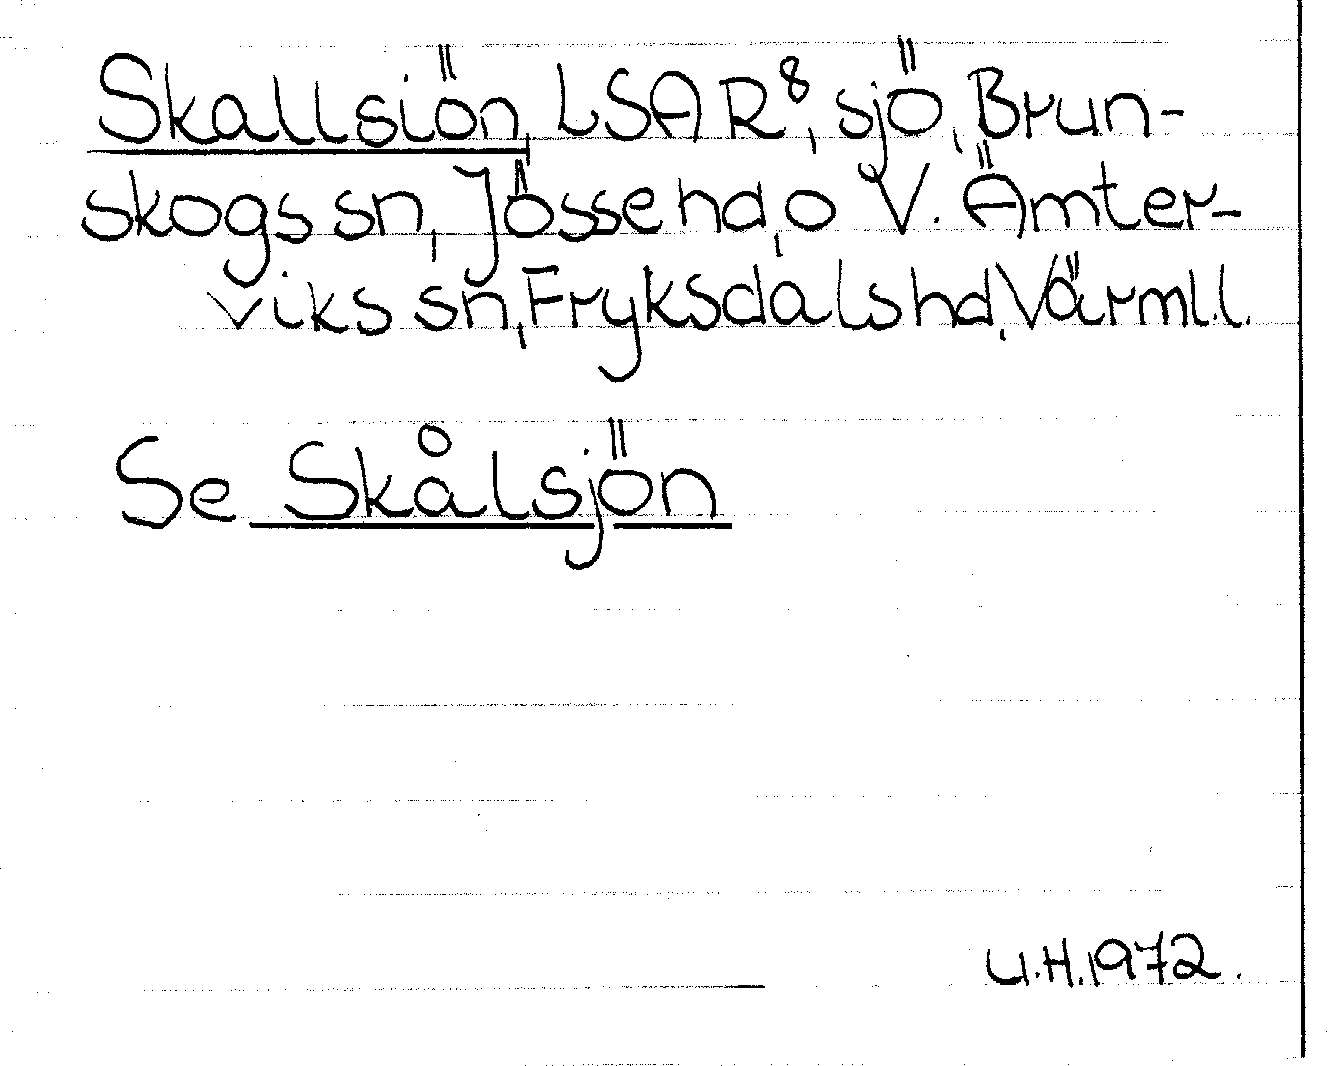 Skallsiön, LSAR⁸, sjö, Brun-
skogs sn, Jösse hd, o V. Ämter-
viks sn, Fryksdals hd, Värml.l.
Se Skålsjön
U.H.1972.